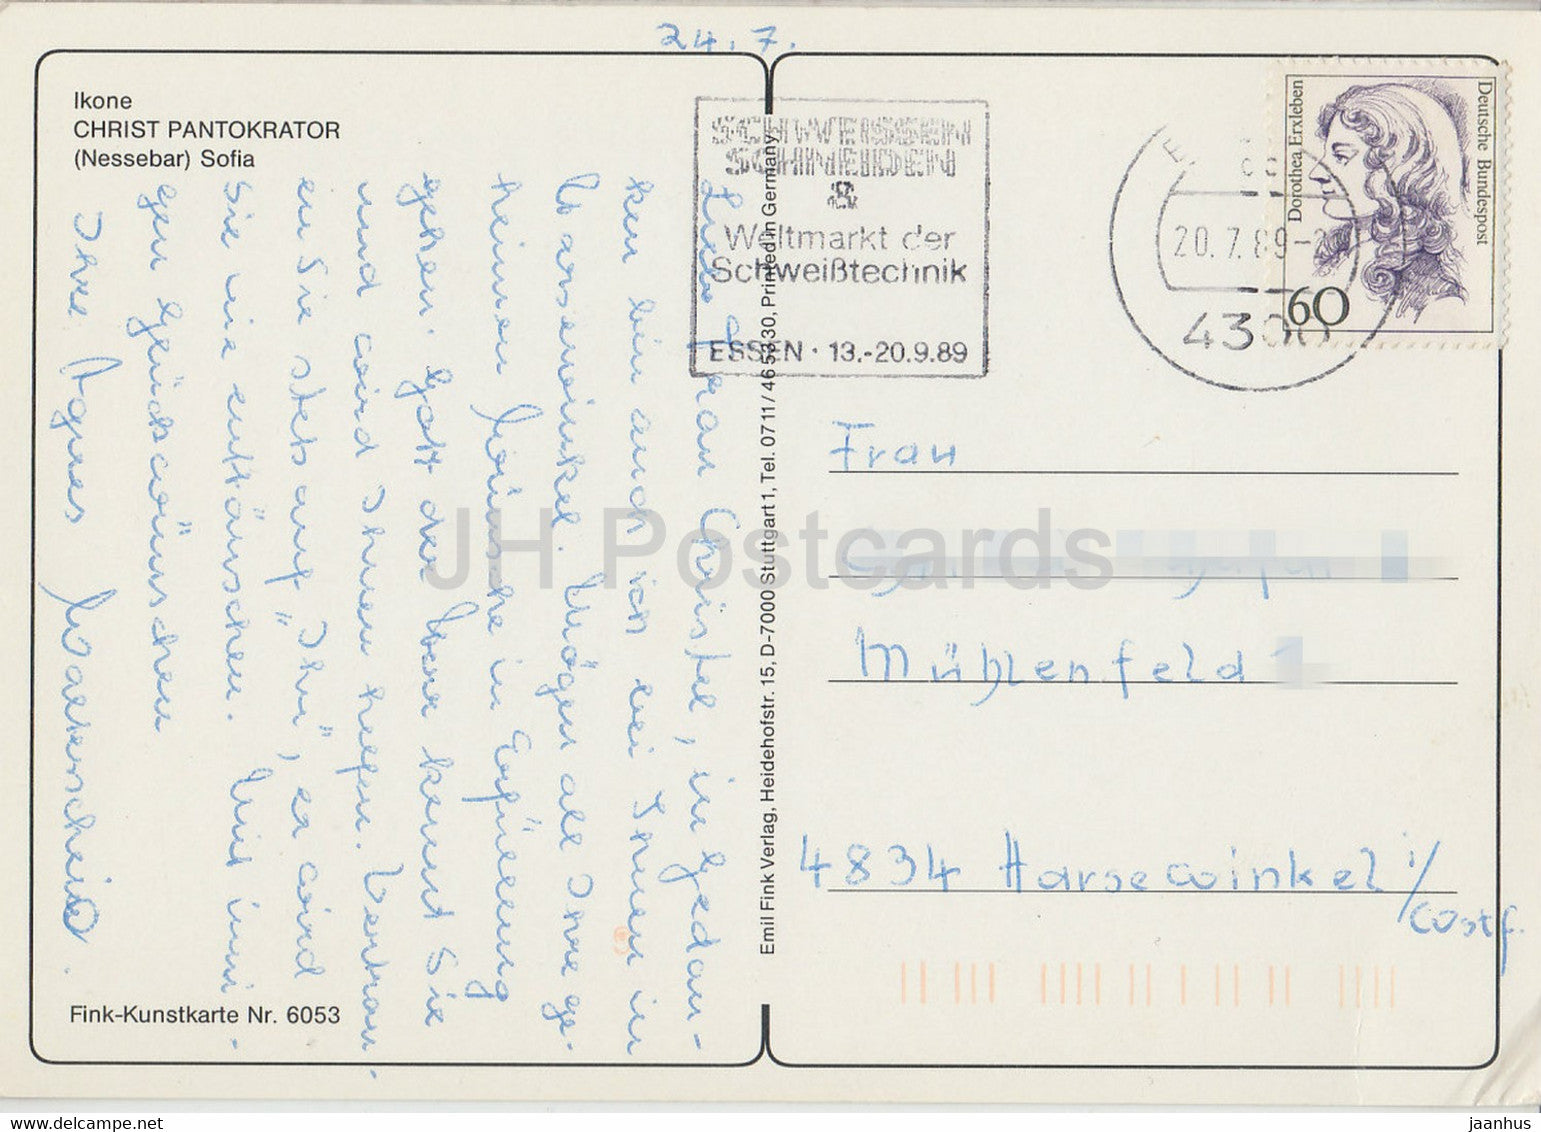 24.7.
Ikone
CHRIST PANTOKRATOR
(Nessebar) Sofia
Liebe Frau Christel, in Gedan-
ken bin auch ich bei Ihnen in
Harsewinkel. Mögen all Ihre ge-
heimen Wünsche in Erfüllung
gehen. Gott der Herr kennt Sie
und wird Ihnen helfen. Vertrau-
en Sie stets auf "Ihn", er wird
Sie nie enttäuschen. Mit inni-
gen Glückwünschen
Ihre Agnes
Fink-Kunstkarte Nr. 6053
Emil Fink Verlag, Heidehofstr. 15, D-7000 Stuttgart 1, Tel. 0711/46 53 30, Printed in Germany
SCHWEISSEN
SCHNEIDEN
Weltmarkt der
Schweißtechnik
ESSEN · 13.-20.9.89
20.7.89
4300
Dorothea Erxleben
Deutsche Bundespost
60
Frau
Mühlenfeld
4834 Harsewinkel i/
Westf.
JH Postcards
delcampe.net
jaanhus